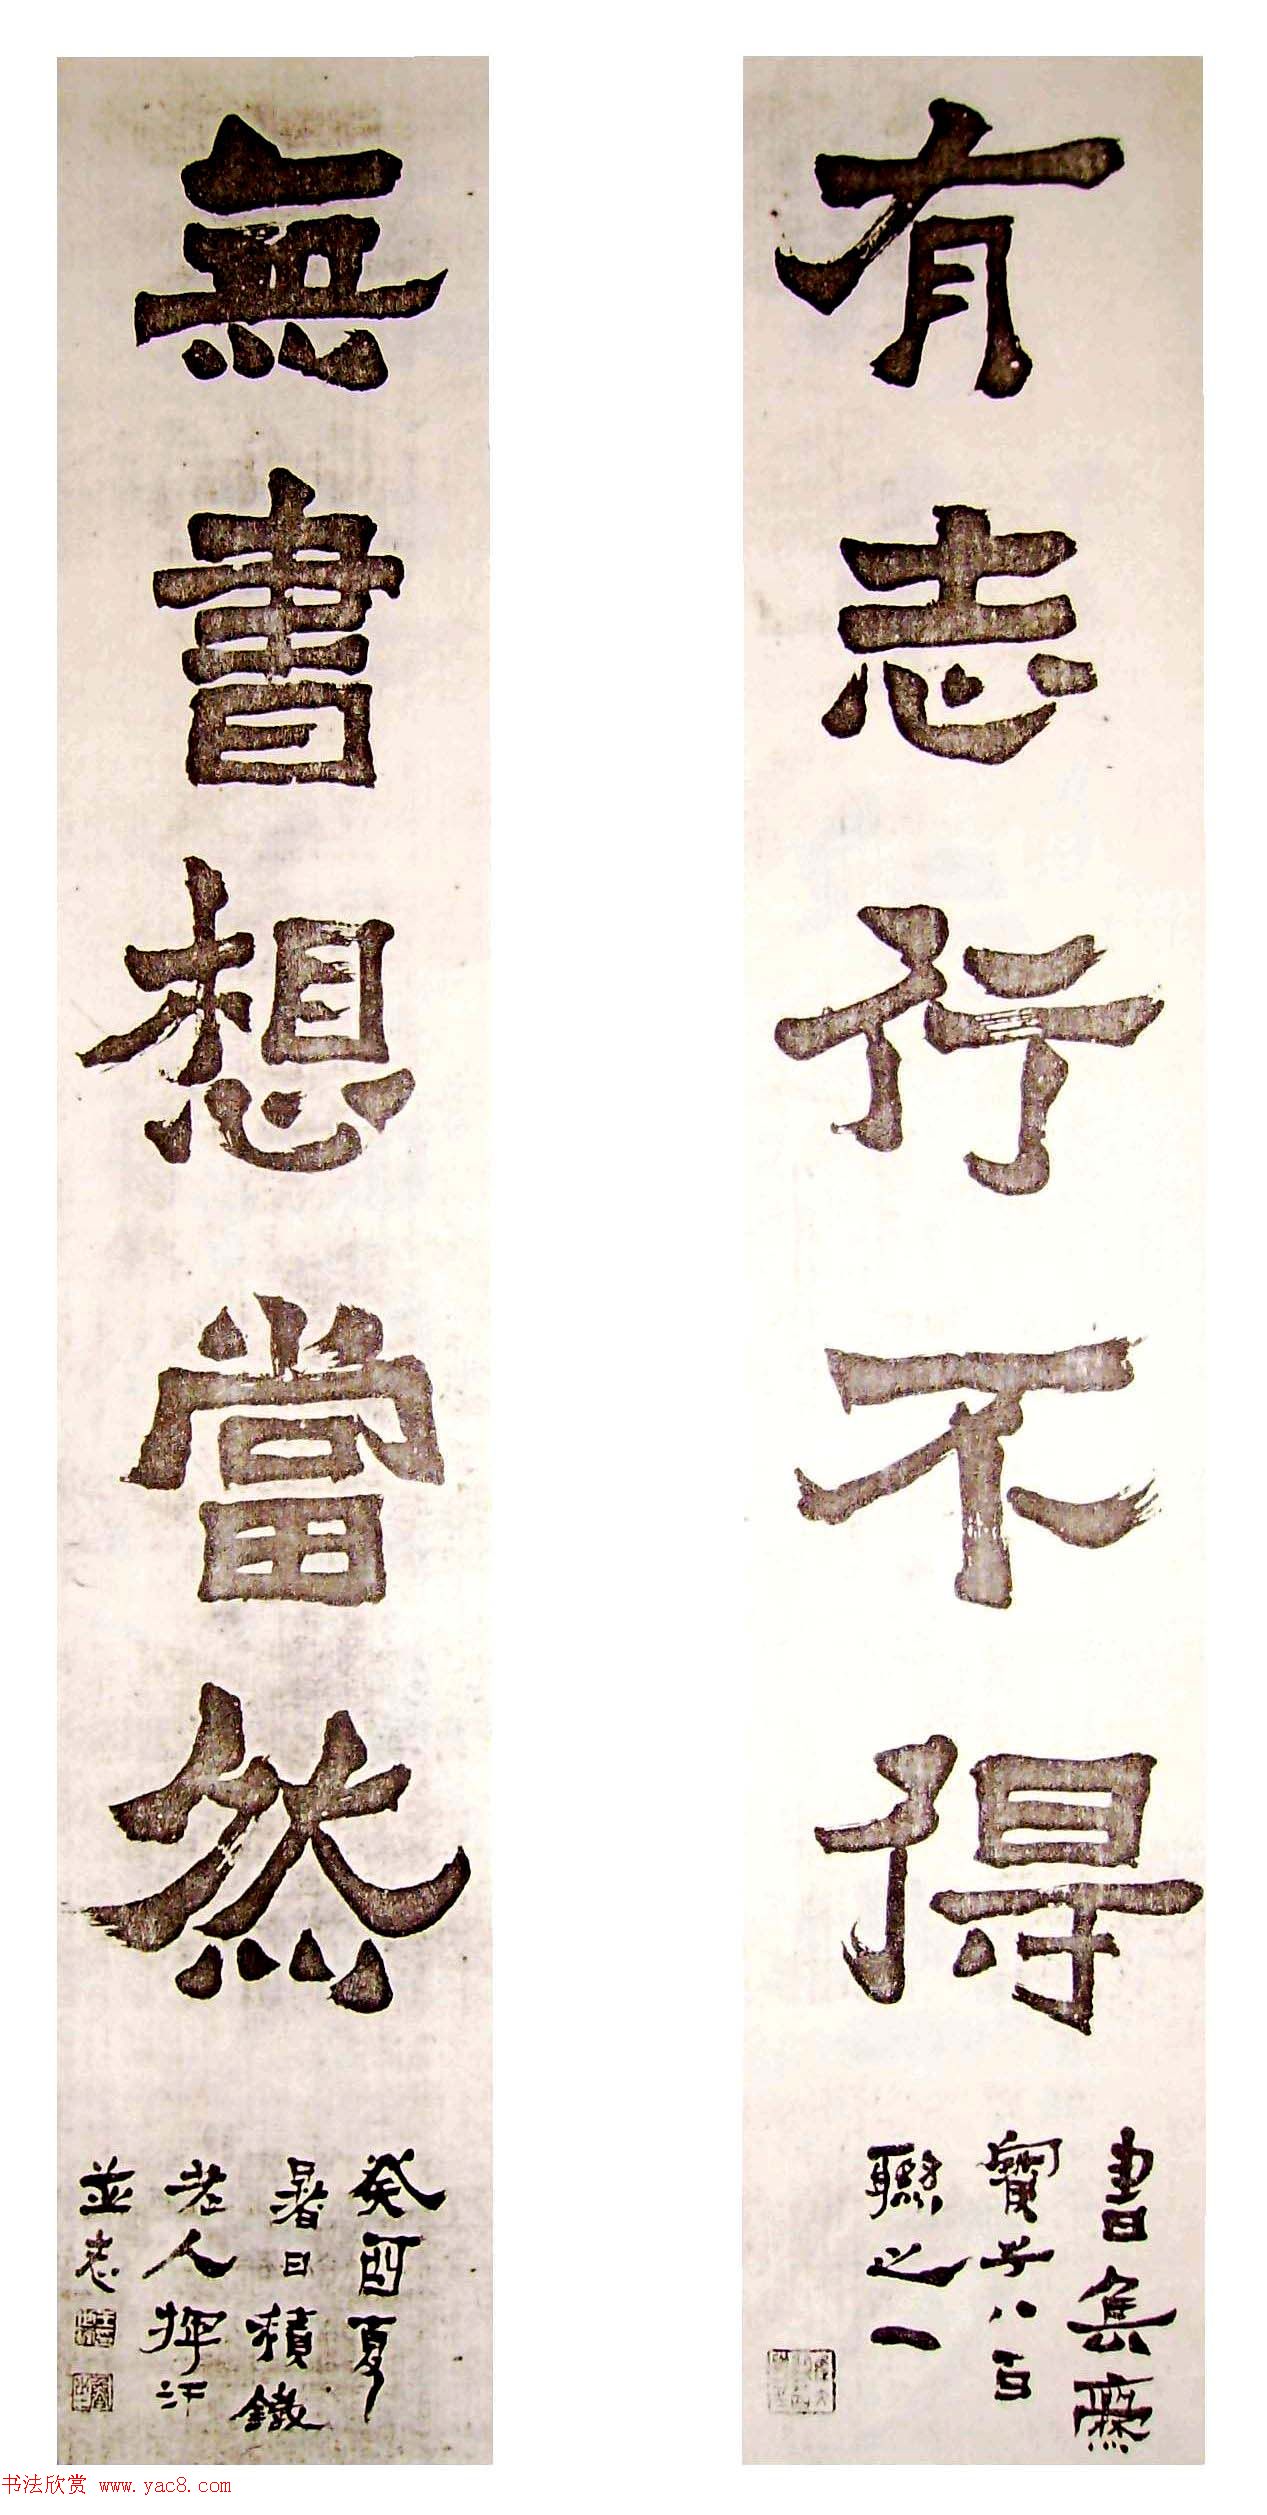 有志行不得
書焦廉
寶子八百
聯之一
無書想當然
癸酉夏
暑日積鐵
老人揮汗
並志
书法欣赏 www.yac8.com